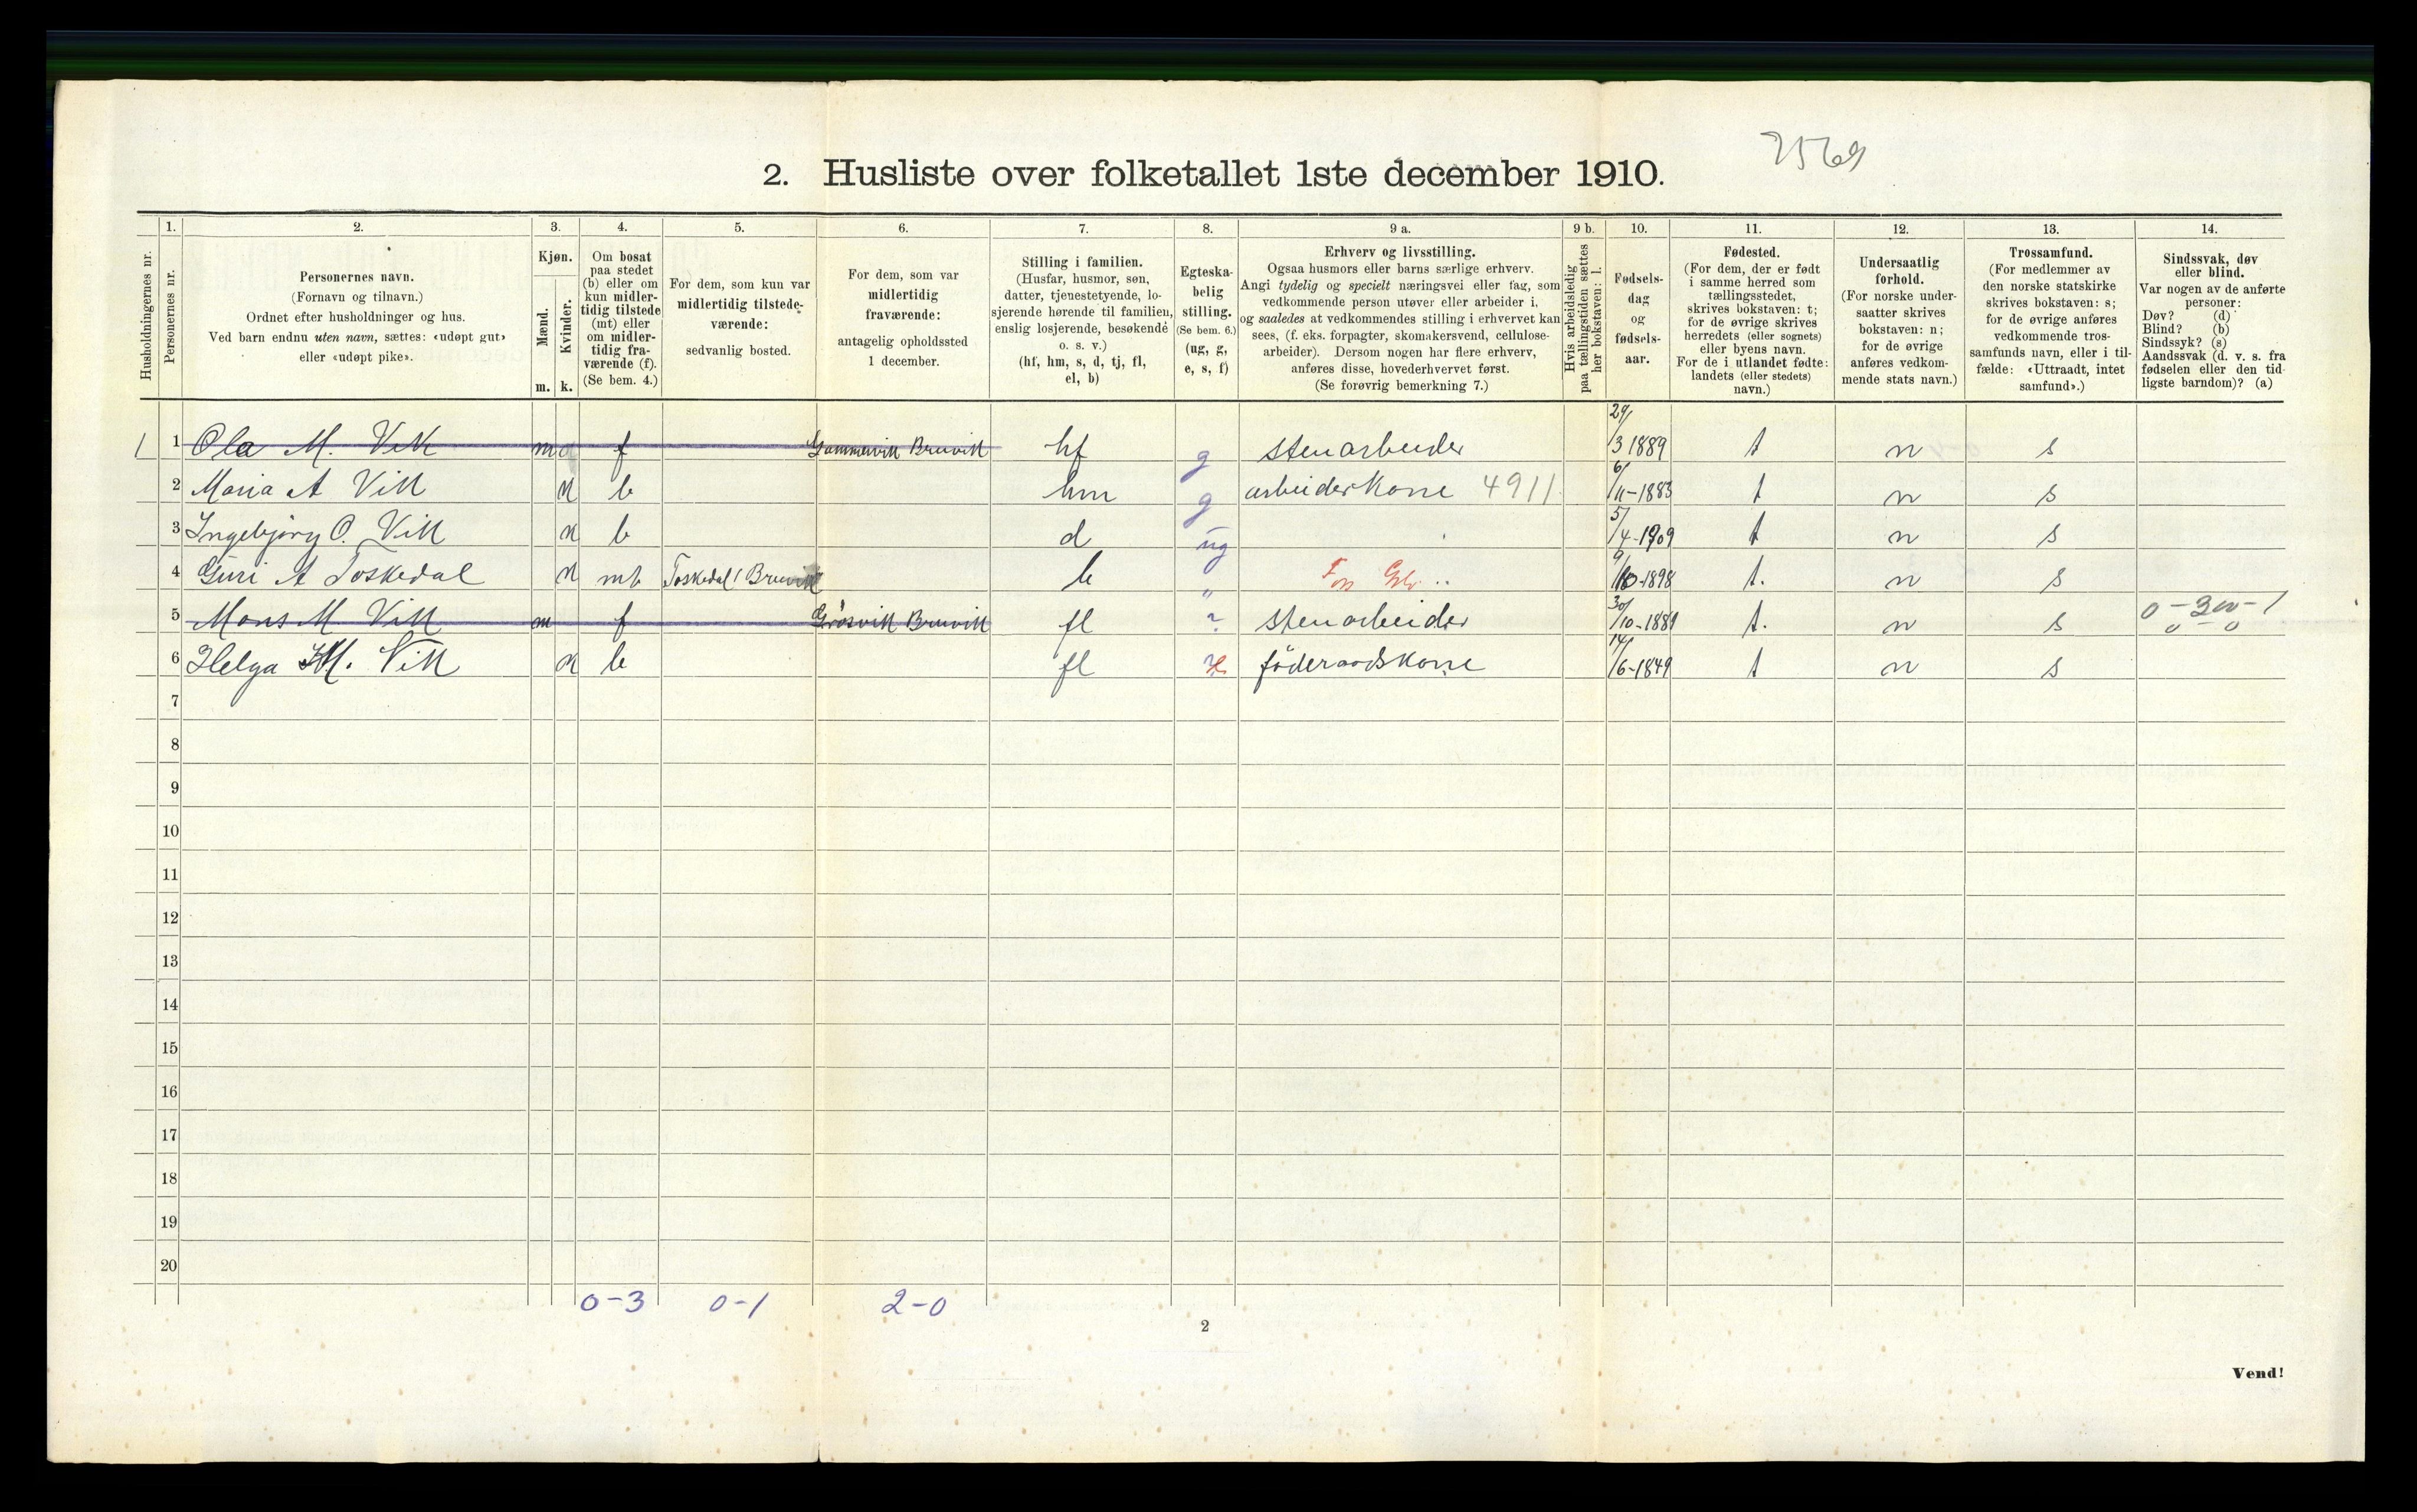 2569
2. Husliste over folketallet 1ste december 1910.
Husholdningernes nr.
1.
Personernes nr.
2.
Personernes navn.
(Fornavn og tilnavn.)
Ordnet efter husholdninger og hus.
Ved barn endnu uten navn, sættes: «udøpt gut»
eller «udøpt pike».
3.
Kjøn.
Mænd.
Kvinder.
m. k.
4.
Om bosat
paa stedet
(b) eller om
kun midler-
tidig tilstede
(mt) eller
om midler-
tidig fra-
værende (f).
(Se bem. 4.)
5.
For dem, som kun var
midlertidig tilstede-
værende:
sedvanlig bosted.
6.
For dem, som var
midlertidig
fraværende:
antagelig opholdssted
1 december.
7.
Stilling i familien.
(Husfar, husmor, søn,
datter, tjenestetyende, lo-
sjerende hørende til familien,
enslig losjerende, besøkende
o. s. v.)
(hf, hm, s, d, tj, fl,
el, b)
8.
Egteska-
belig
stilling.
(Se bem. 6.)
(ug, g,
e, s, f)
9 a.
Erhverv og livsstilling.
Ogsaa husmors eller barns særlige erhverv.
Angi tydelig og specielt næringsvei eller fag, som
vedkommende person utøver eller arbeider i,
og saaledes at vedkommendes stilling i erhvervet kan
sees, (f. eks. forpagter, skomakersvend, cellulose-
arbeider). Dersom nogen har flere erhverv,
anføres disse, hovederhvervet først.
(Se forøvrig bemerkning 7.)
9 b.
Hvis arbeidsledig
paa tællingstiden sættes
her bokstaven: l.
10.
Fødsels-
dag
og
fødsels-
aar.
11.
Fødested.
(For dem, der er født
i samme herred som
tællingsstedet,
skrives bokstaven: t;
for de øvrige skrives
herredets (eller sognets)
eller byens navn.
For de i utlandet fødte:
landets (eller stedets)
navn.)
12.
Undersaatlig
forhold.
(For norske under-
saatter skrives
bokstaven: n;
for de øvrige
anføres vedkom-
mende stats navn.)
13.
Trossamfund.
(For medlemmer av
den norske statskirke
skrives bokstaven: s;
for de øvrige anføres
vedkommende tros-
samfunds navn, eller i til-
fælde: «Uttraadt, intet
samfund».)
14.
Sindssvak, døv
eller blind.
Var nogen av de anførte
personer:
Døv? (d)
Blind? (b)
Sindssyk? (s)
Aandssvak (d. v. s. fra
fødselen eller den tid-
ligste barndom)? (a)
1 1 Ola M. Vik m f Gammervik Bruvik hf g stenarbeider 29/3 1889 t n s
2 Maria A Vik k b hm g arbeiderkone 4911 6/11-1883 t n s
3 Ingebjørg O. Vik k b d ug 5/4-1909 t n s
4 Guri A Toskedal k mt Toskedal i Bruvik b " 9/10-1898 t. n s
5 Mons M Vik m f Bruvik fl ? stenarbeider 30/10-1889 t. n s 0-300-1
0-0
6 Helga M. Vik k b fl föderaadskone 14/6-1849 t n s
7
8
9
10
11
12
13
14
15
16
17
18
19
20
0-3 0-1 2-0
2
Vend!